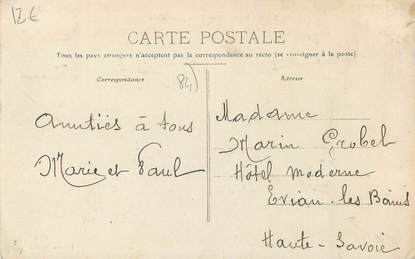 12€
CARTE POSTALE
Tous les pays étrangers n'acceptent pas la correspondance au recto (se renseigner à la poste).
Correspondance
84)
Adresse
Amitiés à tous
Marie et Paul
Madame
Marin Grobel
Hôtel Moderne
Evian-les Bains
Haute-Savoie